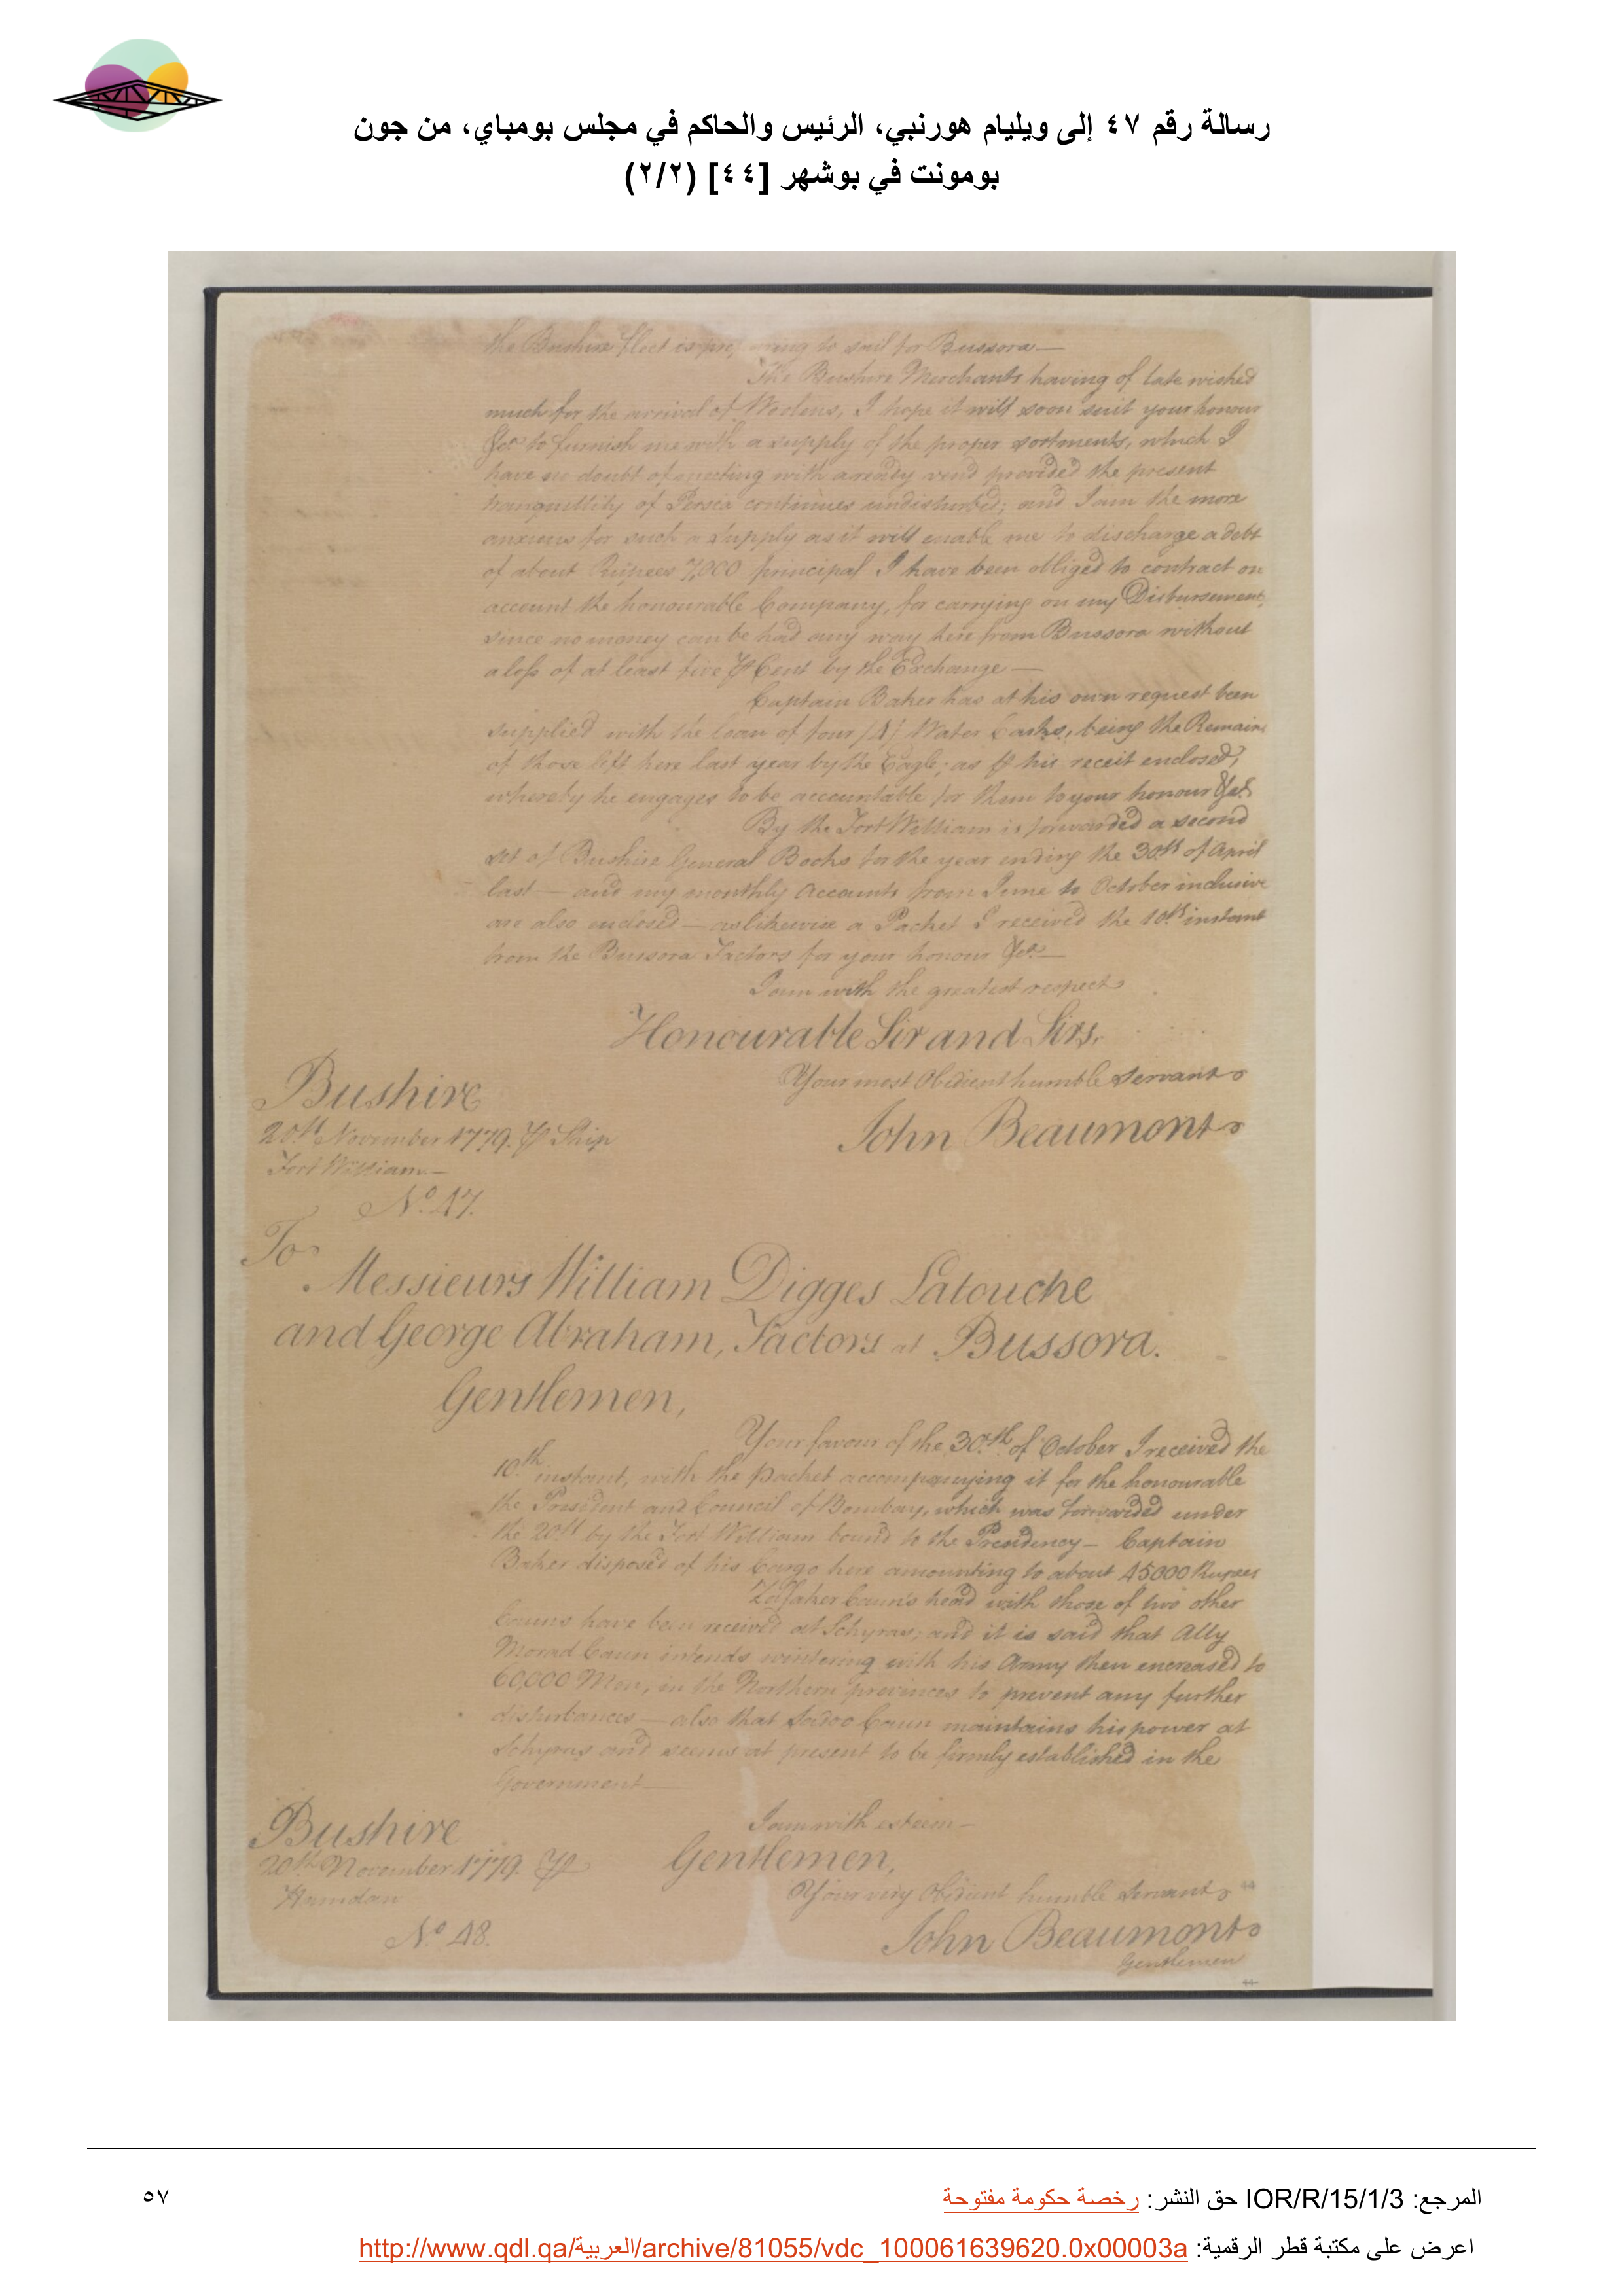 رسالة رقم ٤٧ إلى ويليام هورنبي، الرئيس والحاكم في مجلس بومباي، من جون
بومونت في بوشهر [٤٤] (٢/٢)
the Bushire fleet is preparing to sail for Bussora—
The Bushire Merchants having of late wished
much for the arrival of Woolens, I hope it will soon suit your honour
&ca to furnish me with a supply of the proper sortments, which I
have no doubt of meeting with a ready vend provided the present
tranquillity of Persia continues undisturbed; and I am the more
anxious for such a supply as it will enable me to discharge a debt
of about Rupees 7,000 principal I have been obliged to contract on
account the honourable Company, for carrying on my Disbursements,
since no money can be had any way here from Bussora without
a loss of at least five Pr Cent by the Exchange—
Captain Baker has at his own request been
supplied with the loan of four /4/ Water Casks, being the Remains
of those left here last year by the Eagle; as Pr his receit enclosed,
whereby he engages to be accountable for them to your honour &ca.
By the Fort William is forwarded a second
set of Bushire General Books for the year ending the 30th of April
last— and my monthly Accounts from June to October inclusive
are also enclosed— as likewise a Packet I received the 10th instant
from the Bussora Factors for your honour &ca—
I am with the greatest respect
Honourable Sir and Sirs,
Your most Obedient humble Servant
John Beaumont
Bushire
20th November 1779. Pr Ship
Fort William—
No. 47.
To
Messieurs William Digges Latouche
and George Abraham, Factors at Bussora.
Gentlemen,
Your favour of the 30th of October I received the
10th instant, with the packet accompanying it for the honourable
the President and Council of Bombay, which was forwarded under
the 20th by the Fort William bound to the Presidency— Captain
Baker disposed of his Cargo here amounting to about 45000 Rupees
Zulfaker Caun's head with those of two other
Cauns have been received at Schyras; and it is said that Ally
Morad Caun intends wintering with his Army then encreased to
60,000 Men, in the Northern provinces to prevent any further
disturbances— also that Sadoo Caun maintains his power at
Schyras and seems at present to be firmly established in the
Government—
I am with esteem—
Gentlemen,
Your very Obedient humble Servant
John Beaumont
Bushire
20th November 1779. Pr
Hamdan
No. 48.
Gentlemen
44
المرجع: IOR/R/15/1/3 حق النشر: رخصة حكومة مفتوحة
٥٧
اعرض على مكتبة قطر الرقمية: http://www.qdl.qa/العربية/archive/81055/vdc_100061639620.0x00003a